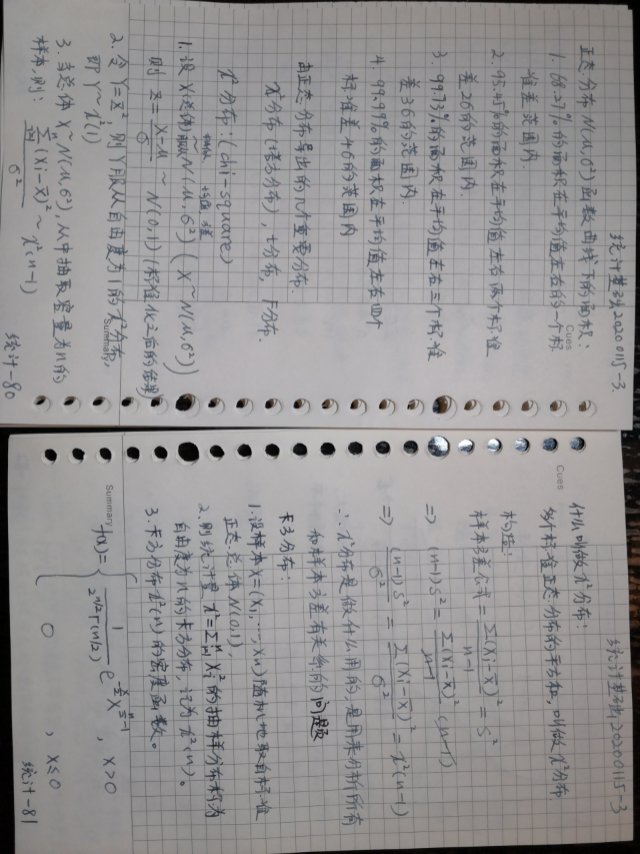 统计基础20200115-3.
Cues
正态分布N(μ,σ²)函数曲线下的面积:
1. 68.27%的面积在平均值左右的一个标
准差范围内.
2. 95.45%的面积在平均值左右两个标准
差2σ的范围内.
3. 99.73%的面积在平均值左右三个标准
差3σ的范围内.
4. 99.99%的面积在平均值左右四个
标准差4σ的范围内
由正态分布导出的几个重要分布.
χ²分布(卡方分布), t分布, F分布.
χ²分布:(chi-square)
1. 设X(总体)服从N(μ,σ²)(X~N(μ,σ²))
则 z=(X-μ)/σ ~ N(0,1)(标准化之后的结果)
2. 令Y=z², 则Y服从自由度为1的χ²分布,
即Y~χ²(1)
Summary
3. 当总体X~N(μ,σ²),从中抽取容量为n的
样本,则: Σ(Xi-X̄)²/σ² ~ χ²(n-1)
统计-80
统计基础20200115-3
Cues
什么叫做χ²分布:
多个标准正态分布的平方和,叫做χ²分布.
构造:
样本方差公式=Σ(Xi-X̄)²/(n-1)=S²
=> (n-1)S²=Σ(Xi-X̄)²/(n-1) (n-1)
=> (n-1)S²/σ²=Σ(Xi-X̄)²/σ²=χ²(n-1)
∴χ²分布是做什么用的,是用来分析所有
和样本方差有关系的问题
卡方分布:
1. 设样本X=(X₁,…,Xn)随机地取自标准
正态总体N(0,1),
2. 则统计量χ²=Σⁿᵢ₌₁Xi²的抽样分布称为
自由度为n的卡方分布,记为χ²(n)。
3. 卡方分布χ²(n)的密度函数。
Summary
f(x)={ 1/(2^(n/2)Γ(n/2)) e^(-x/2) x^(n/2-1) , x>0
0 , x≤0
统计-81